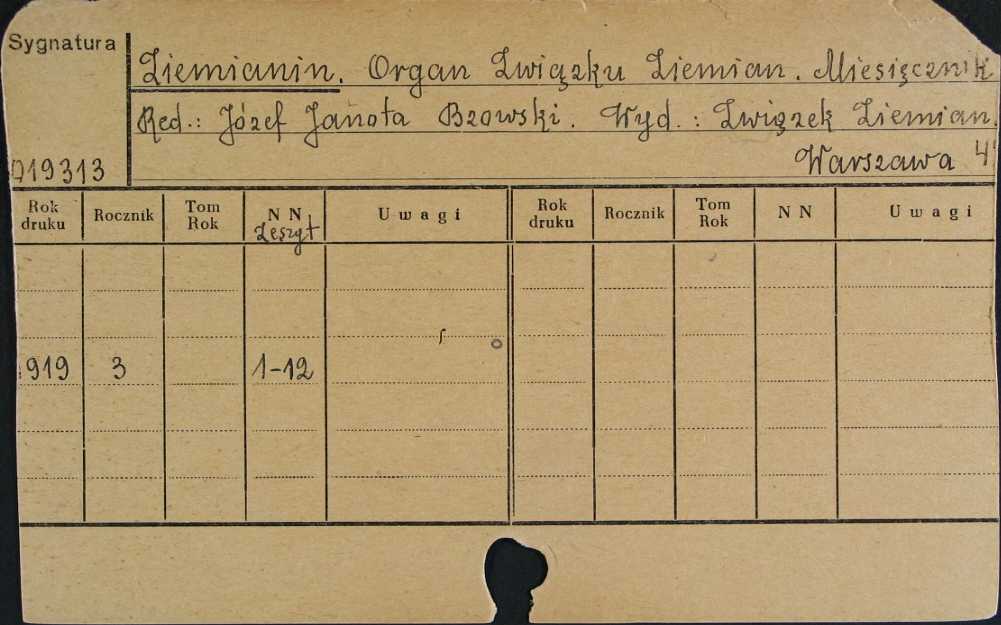 Sygnatura
Ziemianin. Organ Związku Ziemian. Miesięcznik
Red.: Józef Janota Bzowski. Wyd.: Związek Ziemian.
Warszawa 4°
019313
Rok druku Rocznik Tom Rok N N Zeszyt Uwagi Rok druku Rocznik Tom Rok N N Uwagi
919 3 1-12